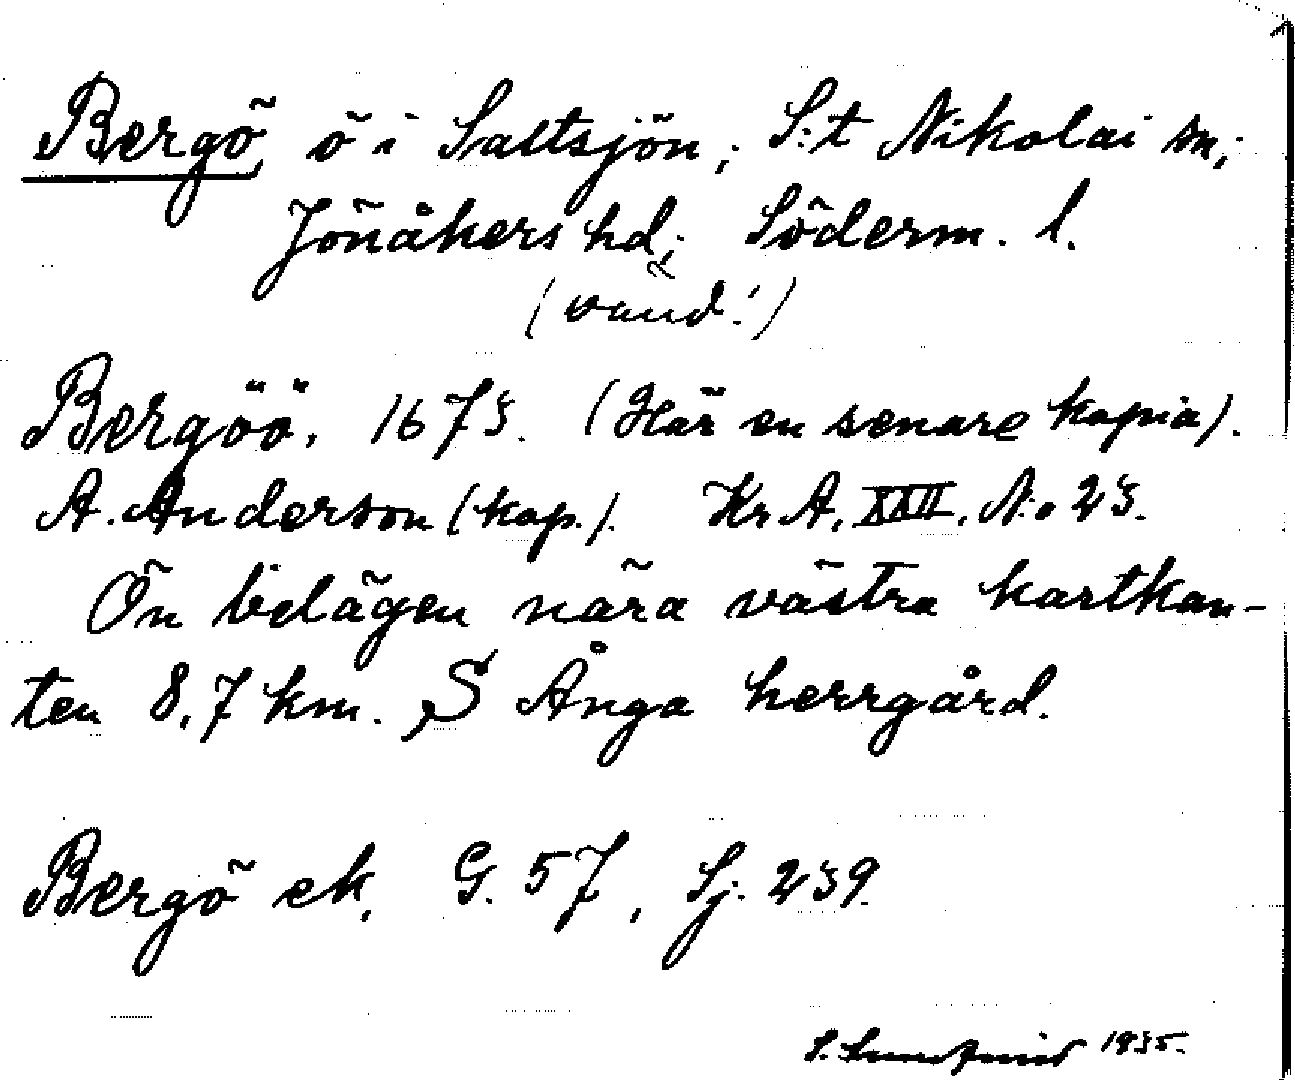 Bergö, ö i Saltsjön; S:t Nikolai sn;
Jönåkers hd; Söderm. l.
(vänd!)
Bergöö. 1673. (Här en senare kopia).
A. Anderson (kop.). Kr A. XXII. N:o 23.
Ön belägen nära västra kartkan-
ten 8,7 km. S Ånga herrgård.
Bergö ek. G. 57, Sj. 239.
1935.